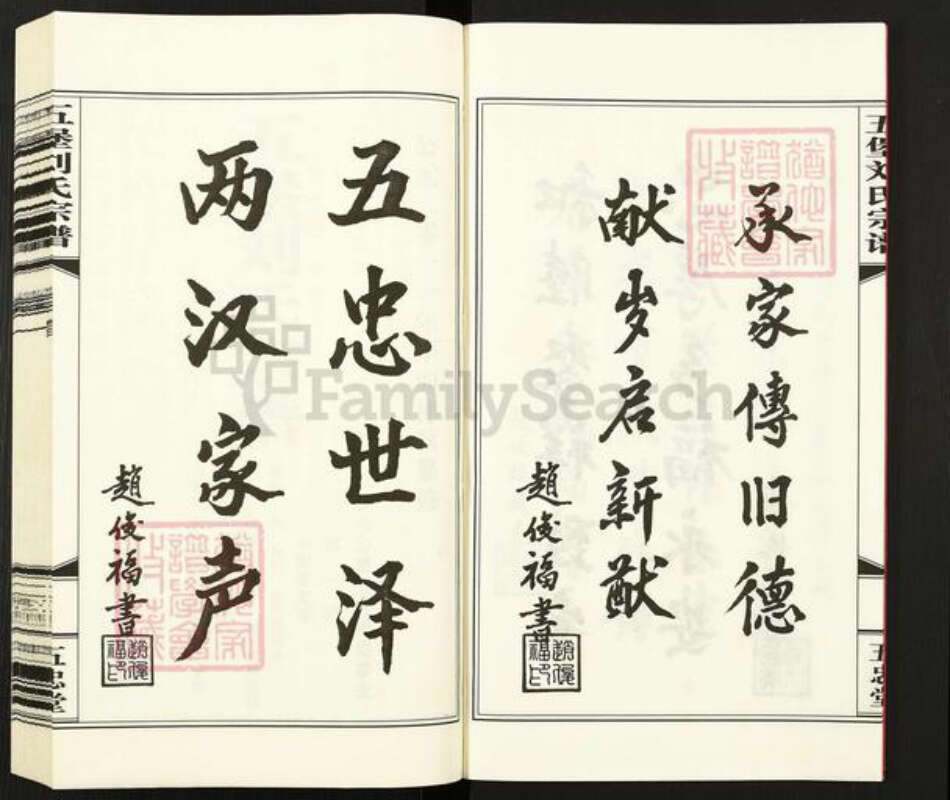 五堡刘氏宗谱
承家傳旧德
献岁启新猷
趙俊福書
趙俊福印
五忠堂
五忠世泽
两汉家声
趙俊福書
趙俊福印
五堡刘氏宗谱
五忠堂
FamilySearch